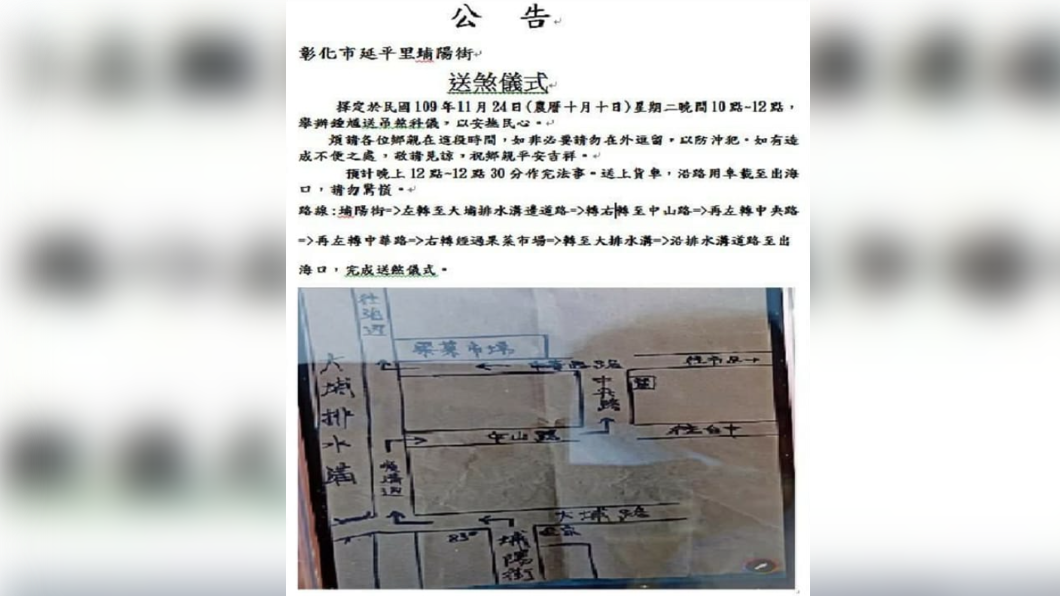 公 告
彰化市延平里埔陽街
送煞儀式
擇定於民國109年11月24日(農曆十月十日)星期二晚間10點~12點，
舉辦鍾馗送吊煞科儀，以安撫民心。
煩請各位鄉親在這段時間，如非必要請勿在外逗留，以防沖犯。如有造
成不便之處，敬請見諒，祝鄉親平安吉祥。
預計晚上12點~12點30分作完法事。送上貨車，沿路用車載至出海
口，請勿驚慌。
路線:埔陽街=>左轉至大埔排水溝邊道路=>轉右轉至中山路=>再左轉中央路
=>再左轉中華路=>右轉經過果菜市場=>轉至大排水溝=>沿排水溝道路至出
海口，完成送煞儀式。
往海邊
果菜市場
中華路
往市區→
大埔排水溝
中央路
中山路
往台中
順溝邊
大埔路
埔陽街